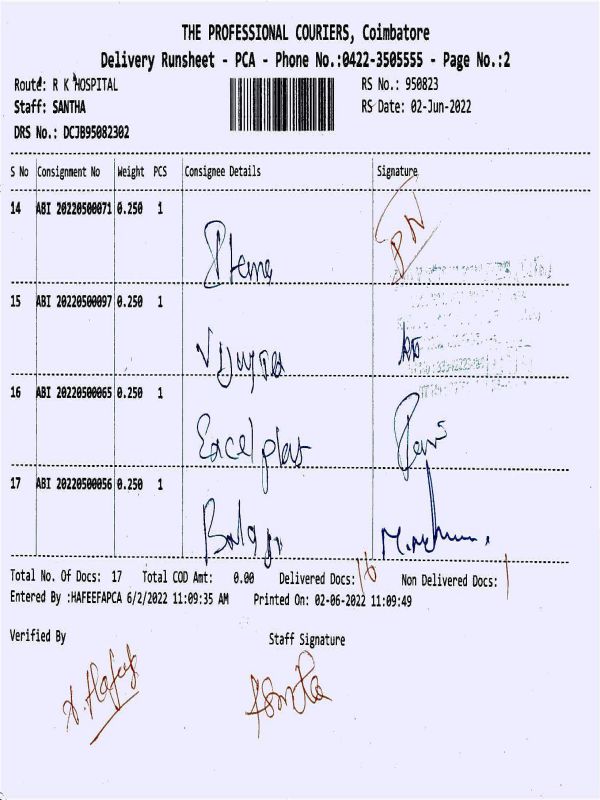 THE PROFESSIONAL COURIERS, Coimbatore
Delivery Runsheet - PCA - Phone No.:0422-3505555 - Page No.:2
Route: R K HOSPITAL
RS No.: 950823
Staff: SANTHA
RS Date: 02-Jun-2022
DRS No.: DCJB95082302
S No Consignment No Weight PCS Consignee Details Signature
14 ABI 20220500071 0.250 1
15 ABI 20220500097 0.250 1
16 ABI 20220500065 0.250 1
Excel plast
17 ABI 20220500056 0.250 1
Total No. Of Docs: 17 Total COD Amt: 0.00 Delivered Docs: 16 Non Delivered Docs: 1
Entered By :HAFEEFAPCA 6/2/2022 11:09:35 AM Printed On: 02-06-2022 11:09:49
Verified By Staff Signature